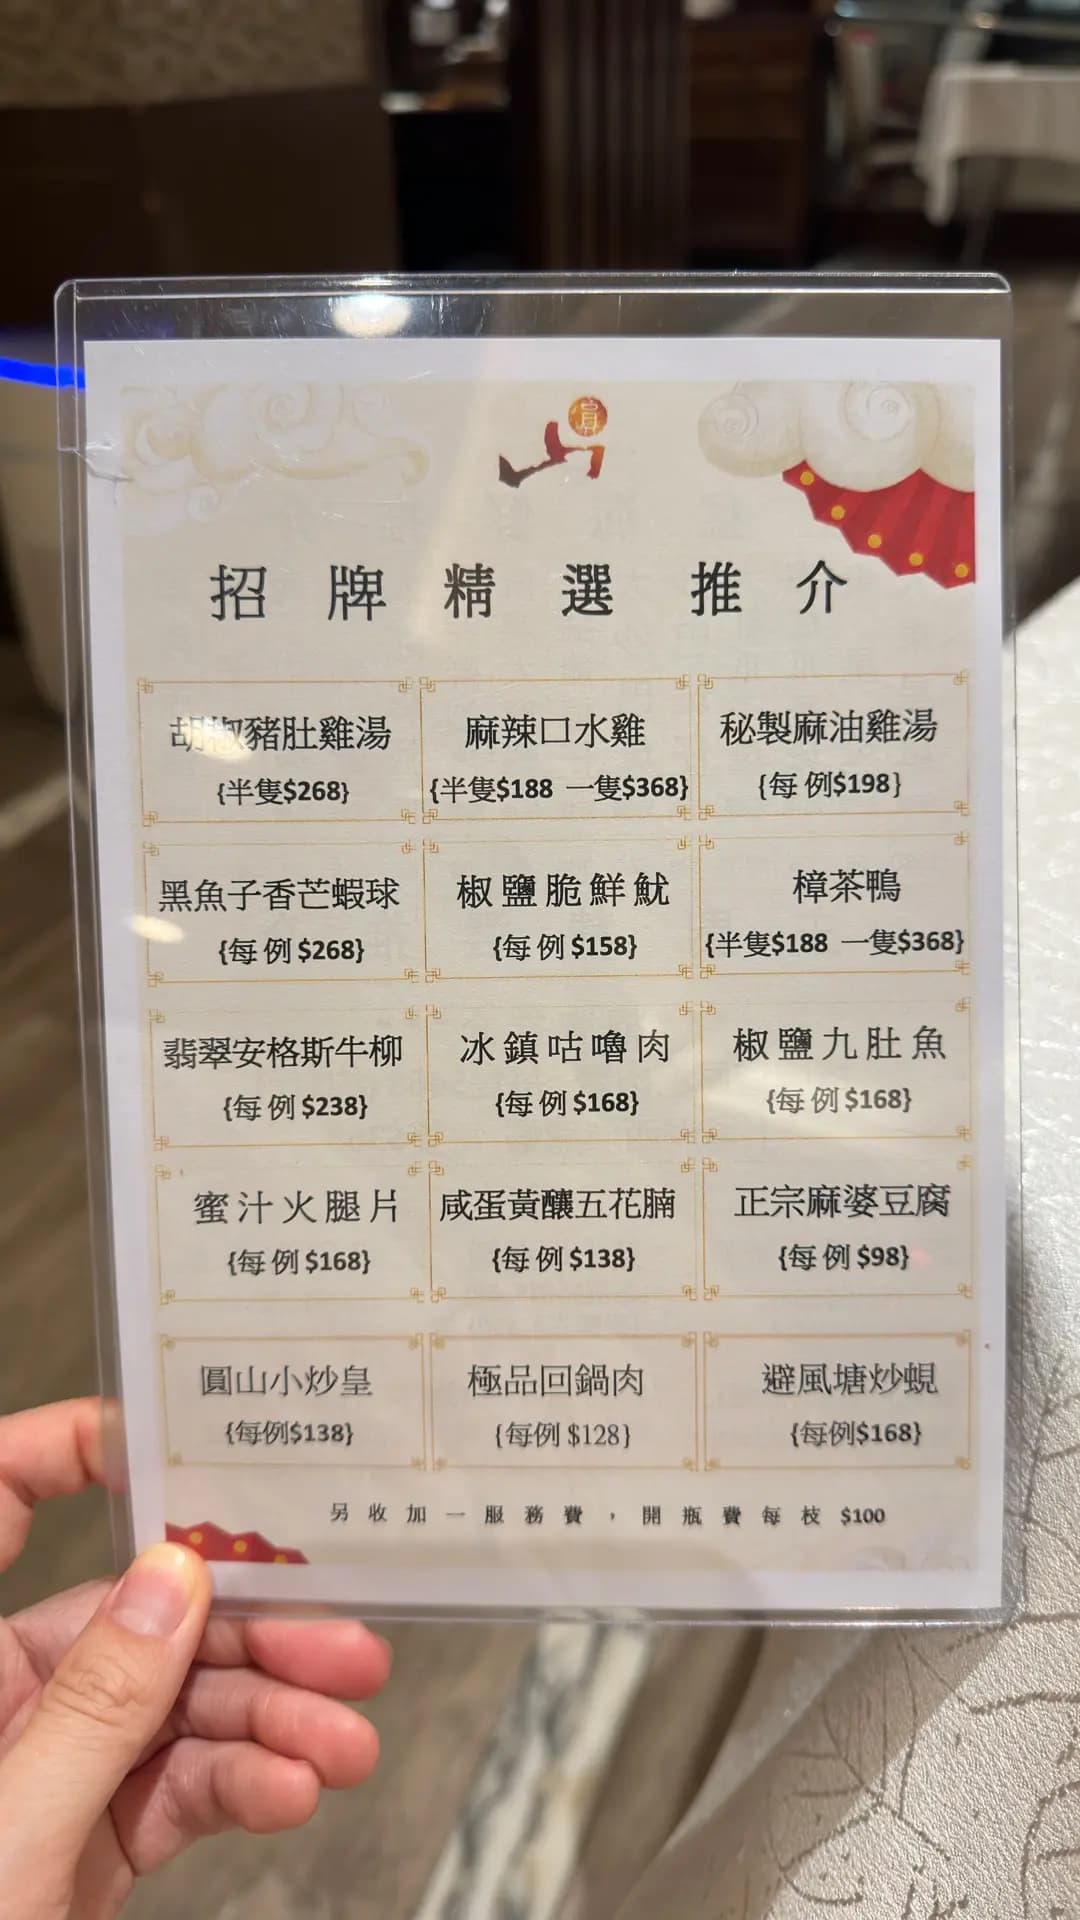 圓山
招牌精選推介
胡椒豬肚雞湯
{半隻$268}
麻辣口水雞
{半隻$188 一隻$368}
秘製麻油雞湯
{每例$198}
黑魚子香芒蝦球
{每例$268}
椒鹽脆鮮魷
{每例$158}
樟茶鴨
{半隻$188 一隻$368}
翡翠安格斯牛柳
{每例$238}
冰鎮咕嚕肉
{每例$168}
椒鹽九肚魚
{每例$168}
蜜汁火腿片
{每例$168}
咸蛋黃釀五花腩
{每例$138}
正宗麻婆豆腐
{每例$98}
圓山小炒皇
{每例$138}
極品回鍋肉
{每例$128}
避風塘炒蜆
{每例$168}
另收加一服務費，開瓶費每枝 $100